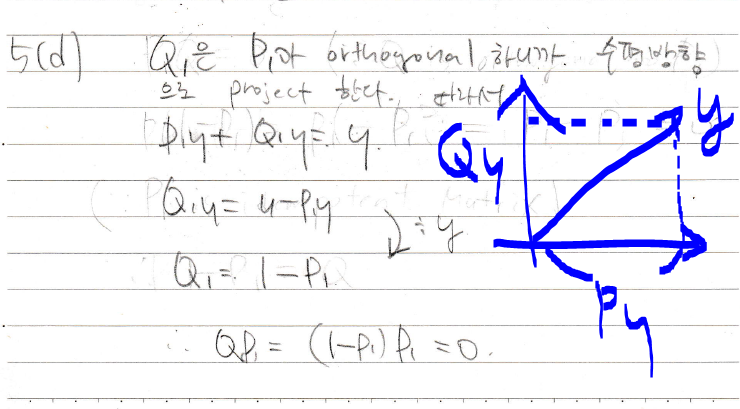 5(d) Q₁은 P₁과 orthogonal 하니까. 수평방향
으로 project 한다. 따라서
P₁y + Q₁y = y.
Q₁y = y - P₁y
÷ y
Q₁ = 1 - P₁
∴ QP₁ = (1-P₁) P₁ = 0.
Qy
y
Py